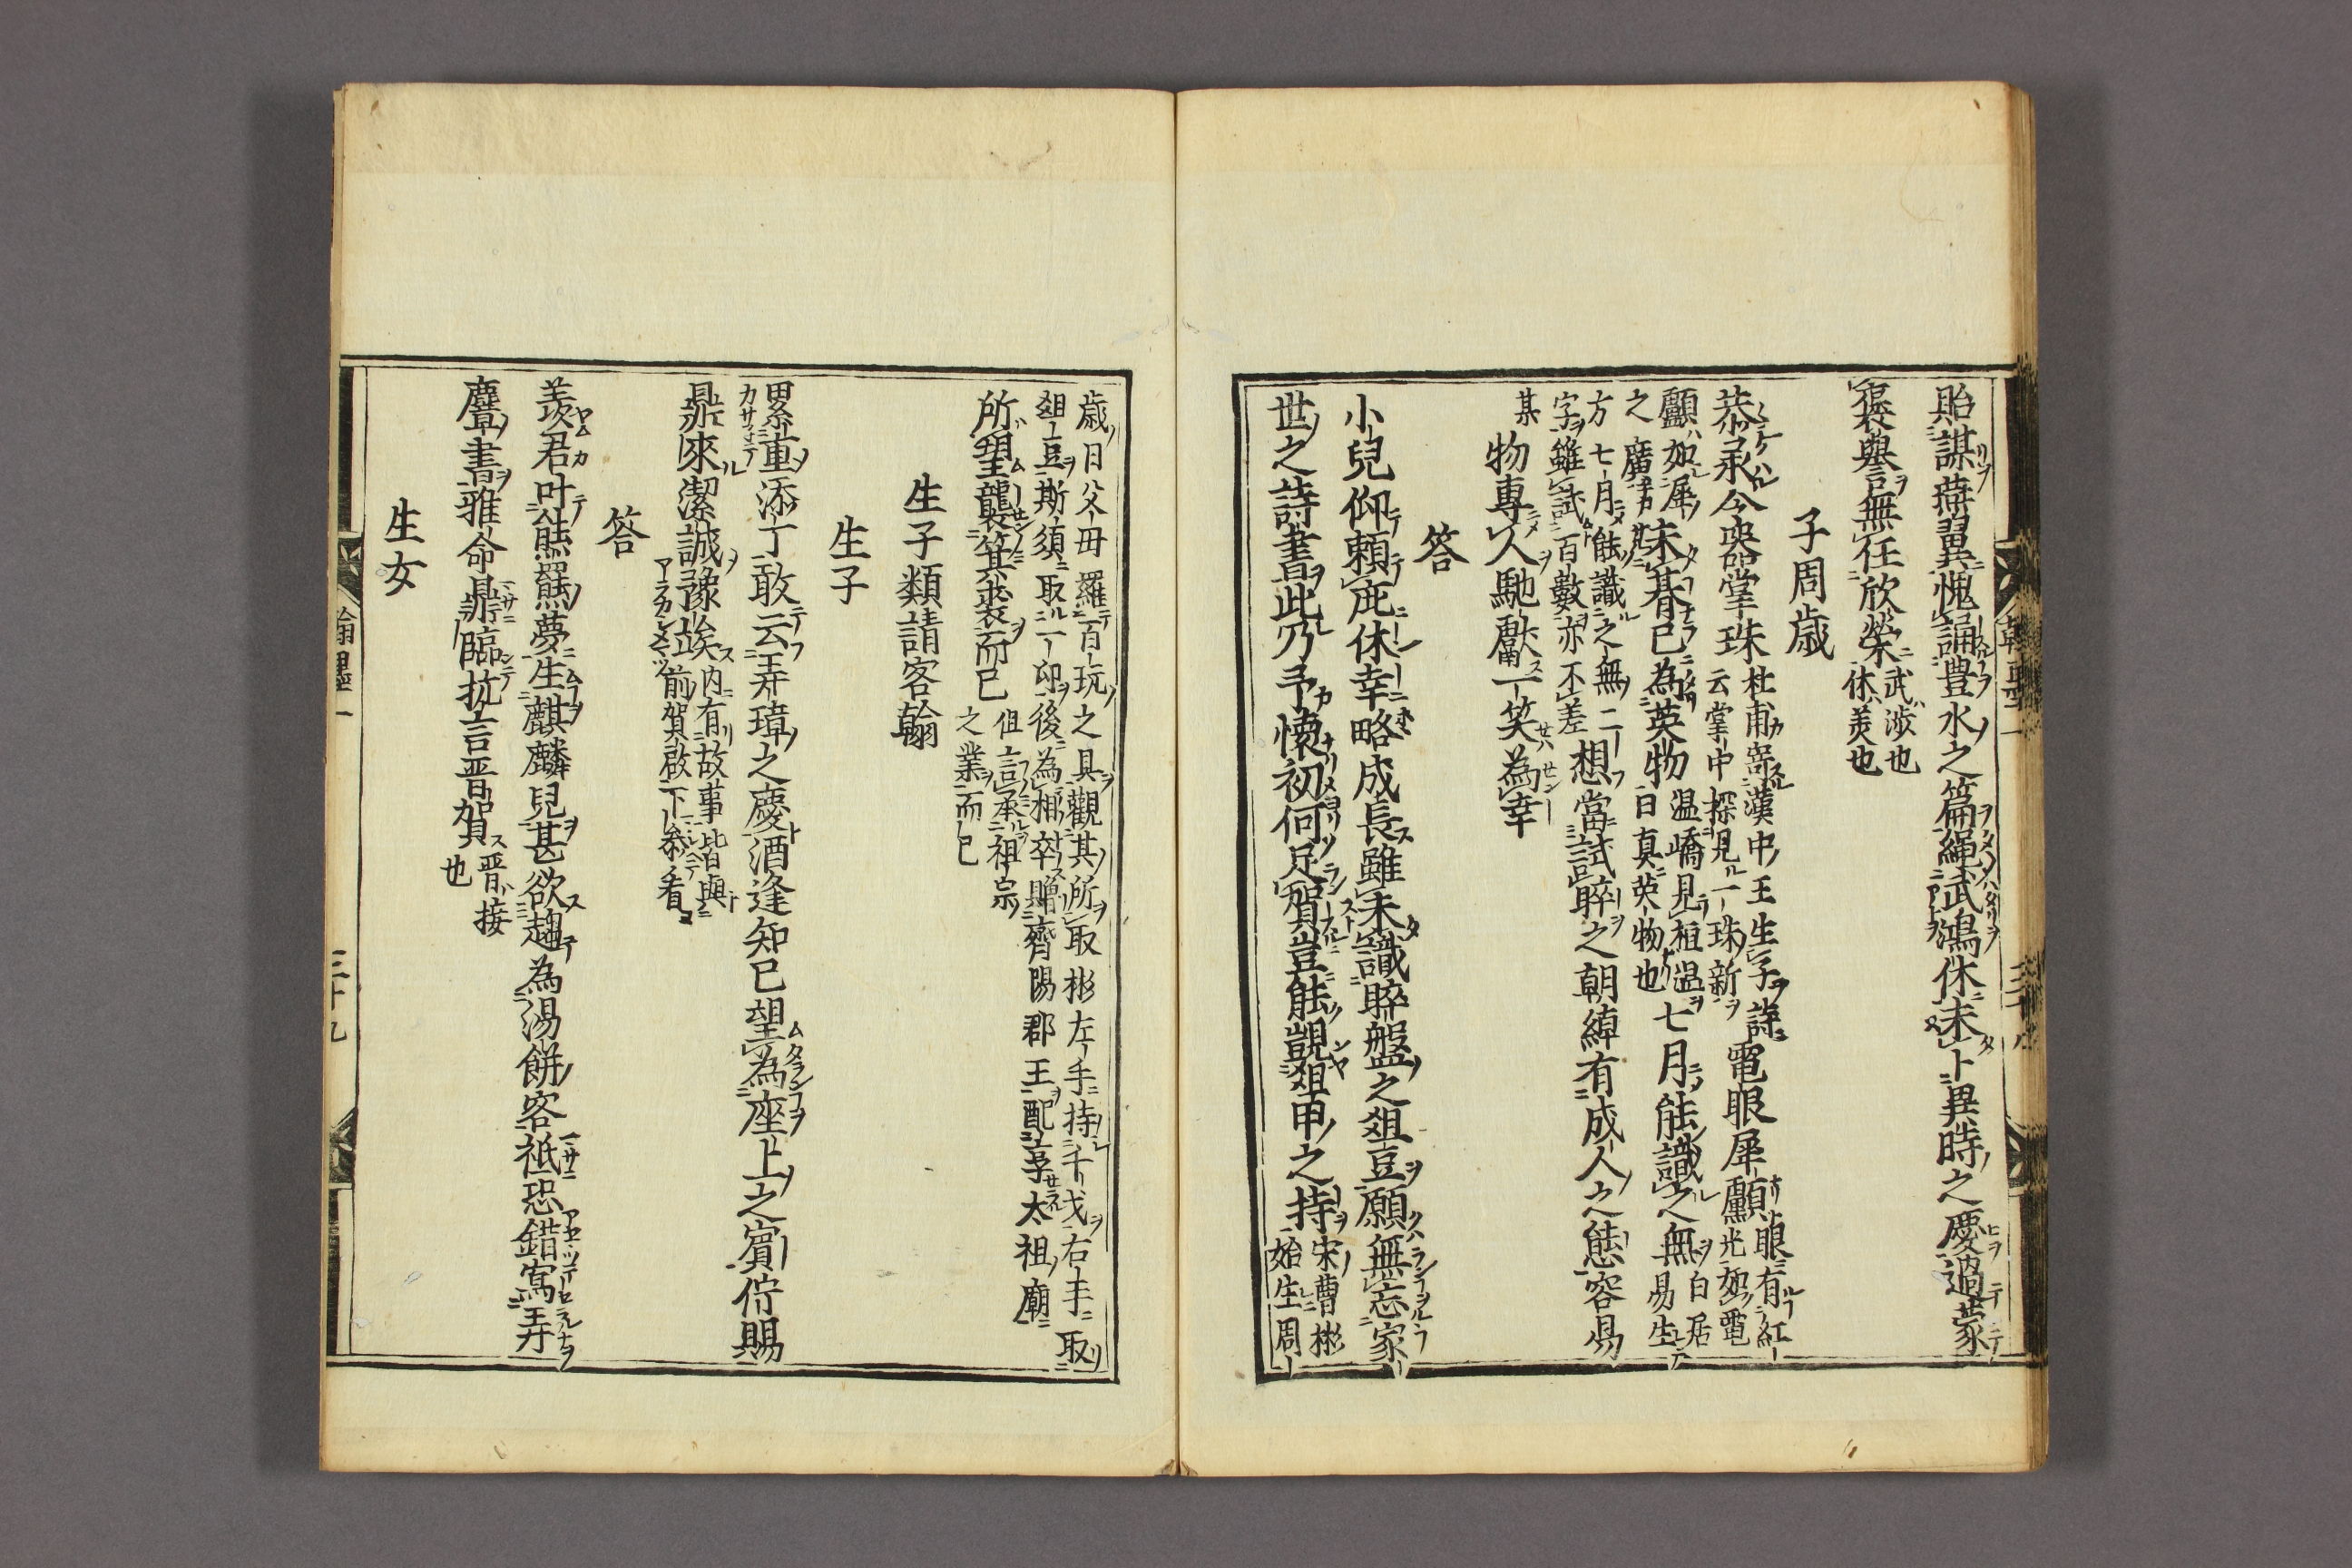 貽謀燕翼愧誦豊水之篇繩武鴻休未卜異時之慶過蒙
褒譽無任欣榮武渉也
休羙也
子周歳
恭承令嬰掌珠杜甫寄漢中王生子詩
云掌中探見一珠新電眼犀顱眼有紅
光如電
顱如犀未朞已為英物温嶠見桓温
曰真英物也七月能識之無白居
易生
之
方七月能識之無二
字雖試百數亦不差想當試晬之朝綽有成人之態容易
某物專人馳獻一笑為幸
答
小兒仰賴庇休幸略成長雖未識晬盤之俎豆願無忘家
世之詩書此乃予懷初何足賀豈能覬俎甲之持宋曹彬
始生周
歳日父毋羅百玩之具觀其所取彬左手持千戈右手取
俎豆斯須取一印後為相卒贈濟陽郡王配享太祖廟
所望襲箕裘而已但言承祖宗
之業而已
生子類請客翰
生子
累重添丁敢云弄璋之慶酒逢知已望為座上之賓佇賜
鼎來潔誠豫竢内有故事皆與
前賀啟下叅看
答
羙君叶熊羆夢生麒麟兒甚欲趨為湯餅客祗恐錯寫弄
麞書雅命鼎臨抗言晋賀晋接
也
生女
翰墨一
三十九